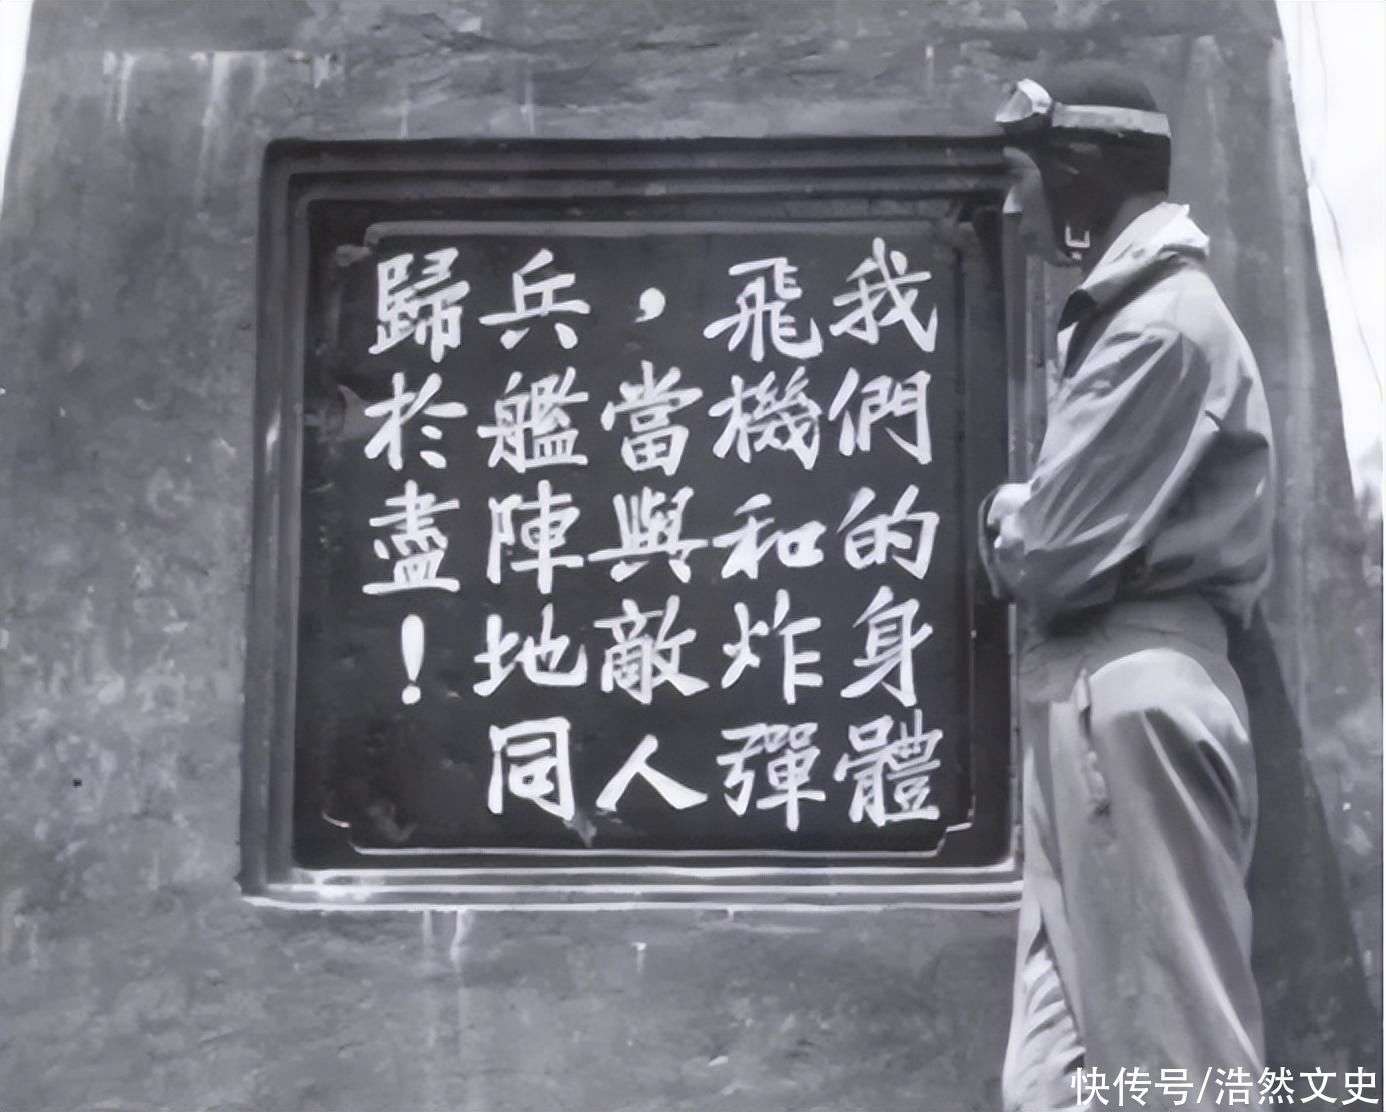 我們的身體
飛機和炸彈
，當與敵人
兵艦陣地同
歸於盡！
快传号/浩然文史